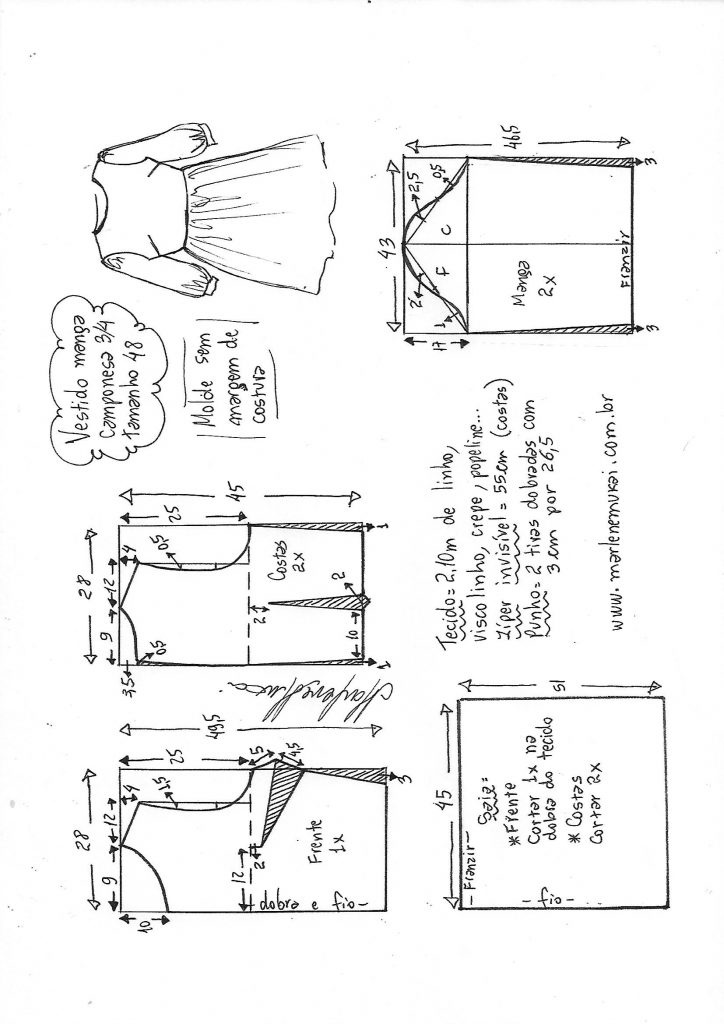 Vestido manga
camponesa 3/4
tamanho 48
Molde sem
margem de
costura
28
9
12
4
10
25
49,5
1,5
5
4,5
12
2
Frente
1x
- dobra e fio -
3
28
9
12
4
3,5
0,5
25
45
0,5
Costas
2x
2
2
10
1
1
43
17
46,5
2
2,5
1
0,5
F
C
Manga
2x
Franzir
3
3
45
- Franzir -
Saia=
*Frente
Cortar 1x na
dobra do tecido
* Costas
Cortar 2x
- fio -
51
Tecido= 2,10m de linho,
viscolinho, crepe, popeline...
Zíper invisível = 55cm (costas)
Punho= 2 tiras dobradas com
3 cm por 26,5
www.marlenemukai.com.br